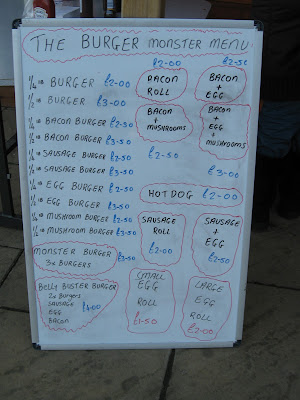 THE BURGER MONSTER MENU
1/4 lb BURGER £2-00
1/2 lb BURGER £3-00
1/4 lb BACON BURGER £2-50
1/2 lb BACON BURGER £3-50
1/4 lb SAUSAGE BURGER £2-50
1/2 lb SAUSAGE BURGER £3-50
1/4 lb EGG BURGER £2-50
1/2 lb EGG BURGER £3-50
1/4 lb MUSHROOM BURGER £2-50
1/2 lb MUSHROOM BURGER £3-50
MONSTER BURGER
3x BURGERS £3-50
BELLY BUSTER BURGER
2x Burgers
SAUSAGE
EGG
BACON
£4-00
£2-00
BACON
ROLL
BACON
+
MUSHROOMS
£2-50
£2-50
BACON
+
EGG
BACON
+
EGG
+
MUSHROOMS
£3-00
HOT DOG £2-00
SAUSAGE
ROLL
£2-00
SAUSAGE
+
EGG
£2-50
SMALL
EGG
ROLL
£1-50
LARGE
EGG
ROLL
£2-00